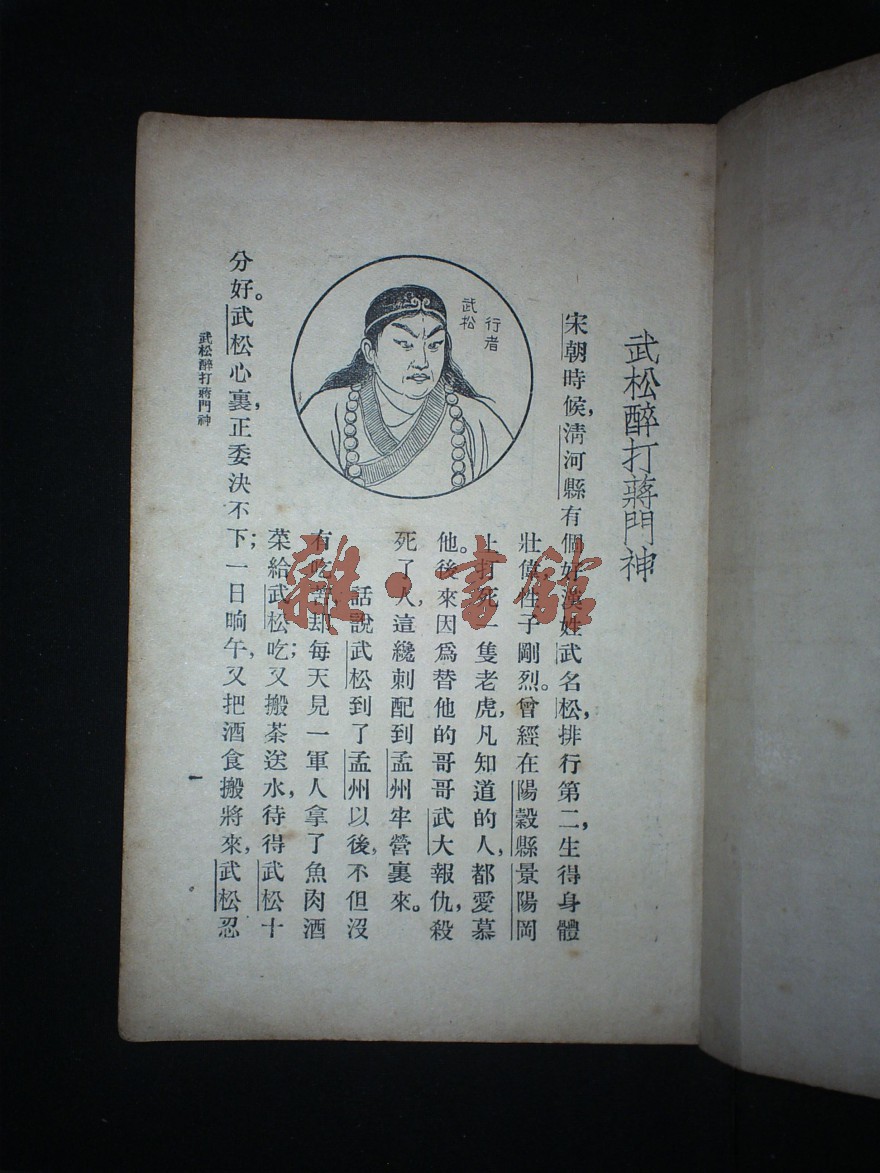 武松醉打蔣門神
宋朝時候,清河縣有個好漢姓武名松,排行第二,生得身體
壯偉性子剛烈。曾經在陽穀縣景陽岡
上打死一隻老虎,凡知道的人,都愛慕
他。後來因爲替他的哥哥武大報仇,殺
死了人,這纔刺配到孟州牢營裏來。
行者
武松
話說武松到了孟州以後,不但沒
有吃苦,却每天見一軍人拿了魚肉酒
菜給武松吃;又搬茶送水,待得武松十
分好。武松心裏,正委決不下;一日晌午,又把酒食搬將來,武松忍
武松醉打蔣門神
一
雜·書館